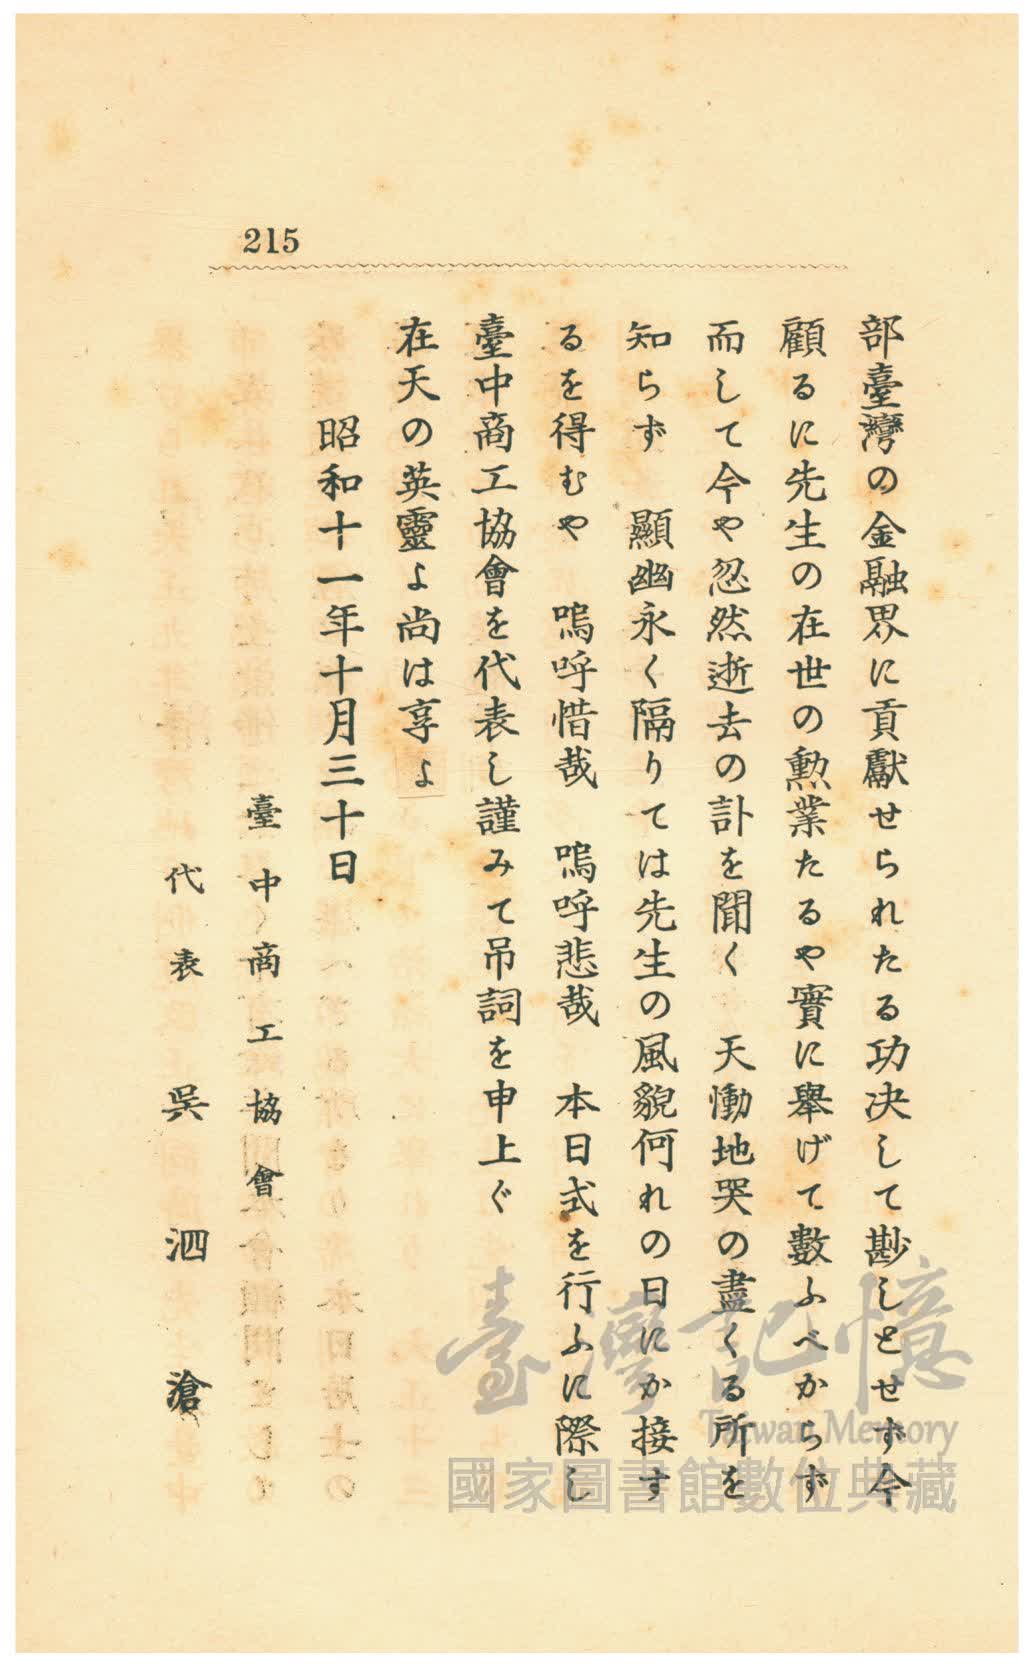 215
部臺灣の金融界に貢獻せられたる功決して尠しとせず今
顧るに先生の在世の勲業たるや實に擧げて數ふべからず
而して今や忽然逝去の訃を聞く　天慟地哭の盡くる所を
知らず　顯幽永く隔りては先生の風貌何れの日にか接す
るを得むや　嗚呼惜哉　嗚呼悲哉　本日式を行ふに際し
臺中商工協會を代表し謹みて吊詞を申上ぐ
在天の英靈よ尚は享よ
昭和十一年十月三十日
臺中商工協會
代表　吳泗滄
臺灣記憶
Taiwan Memory
國家圖書館數位典藏